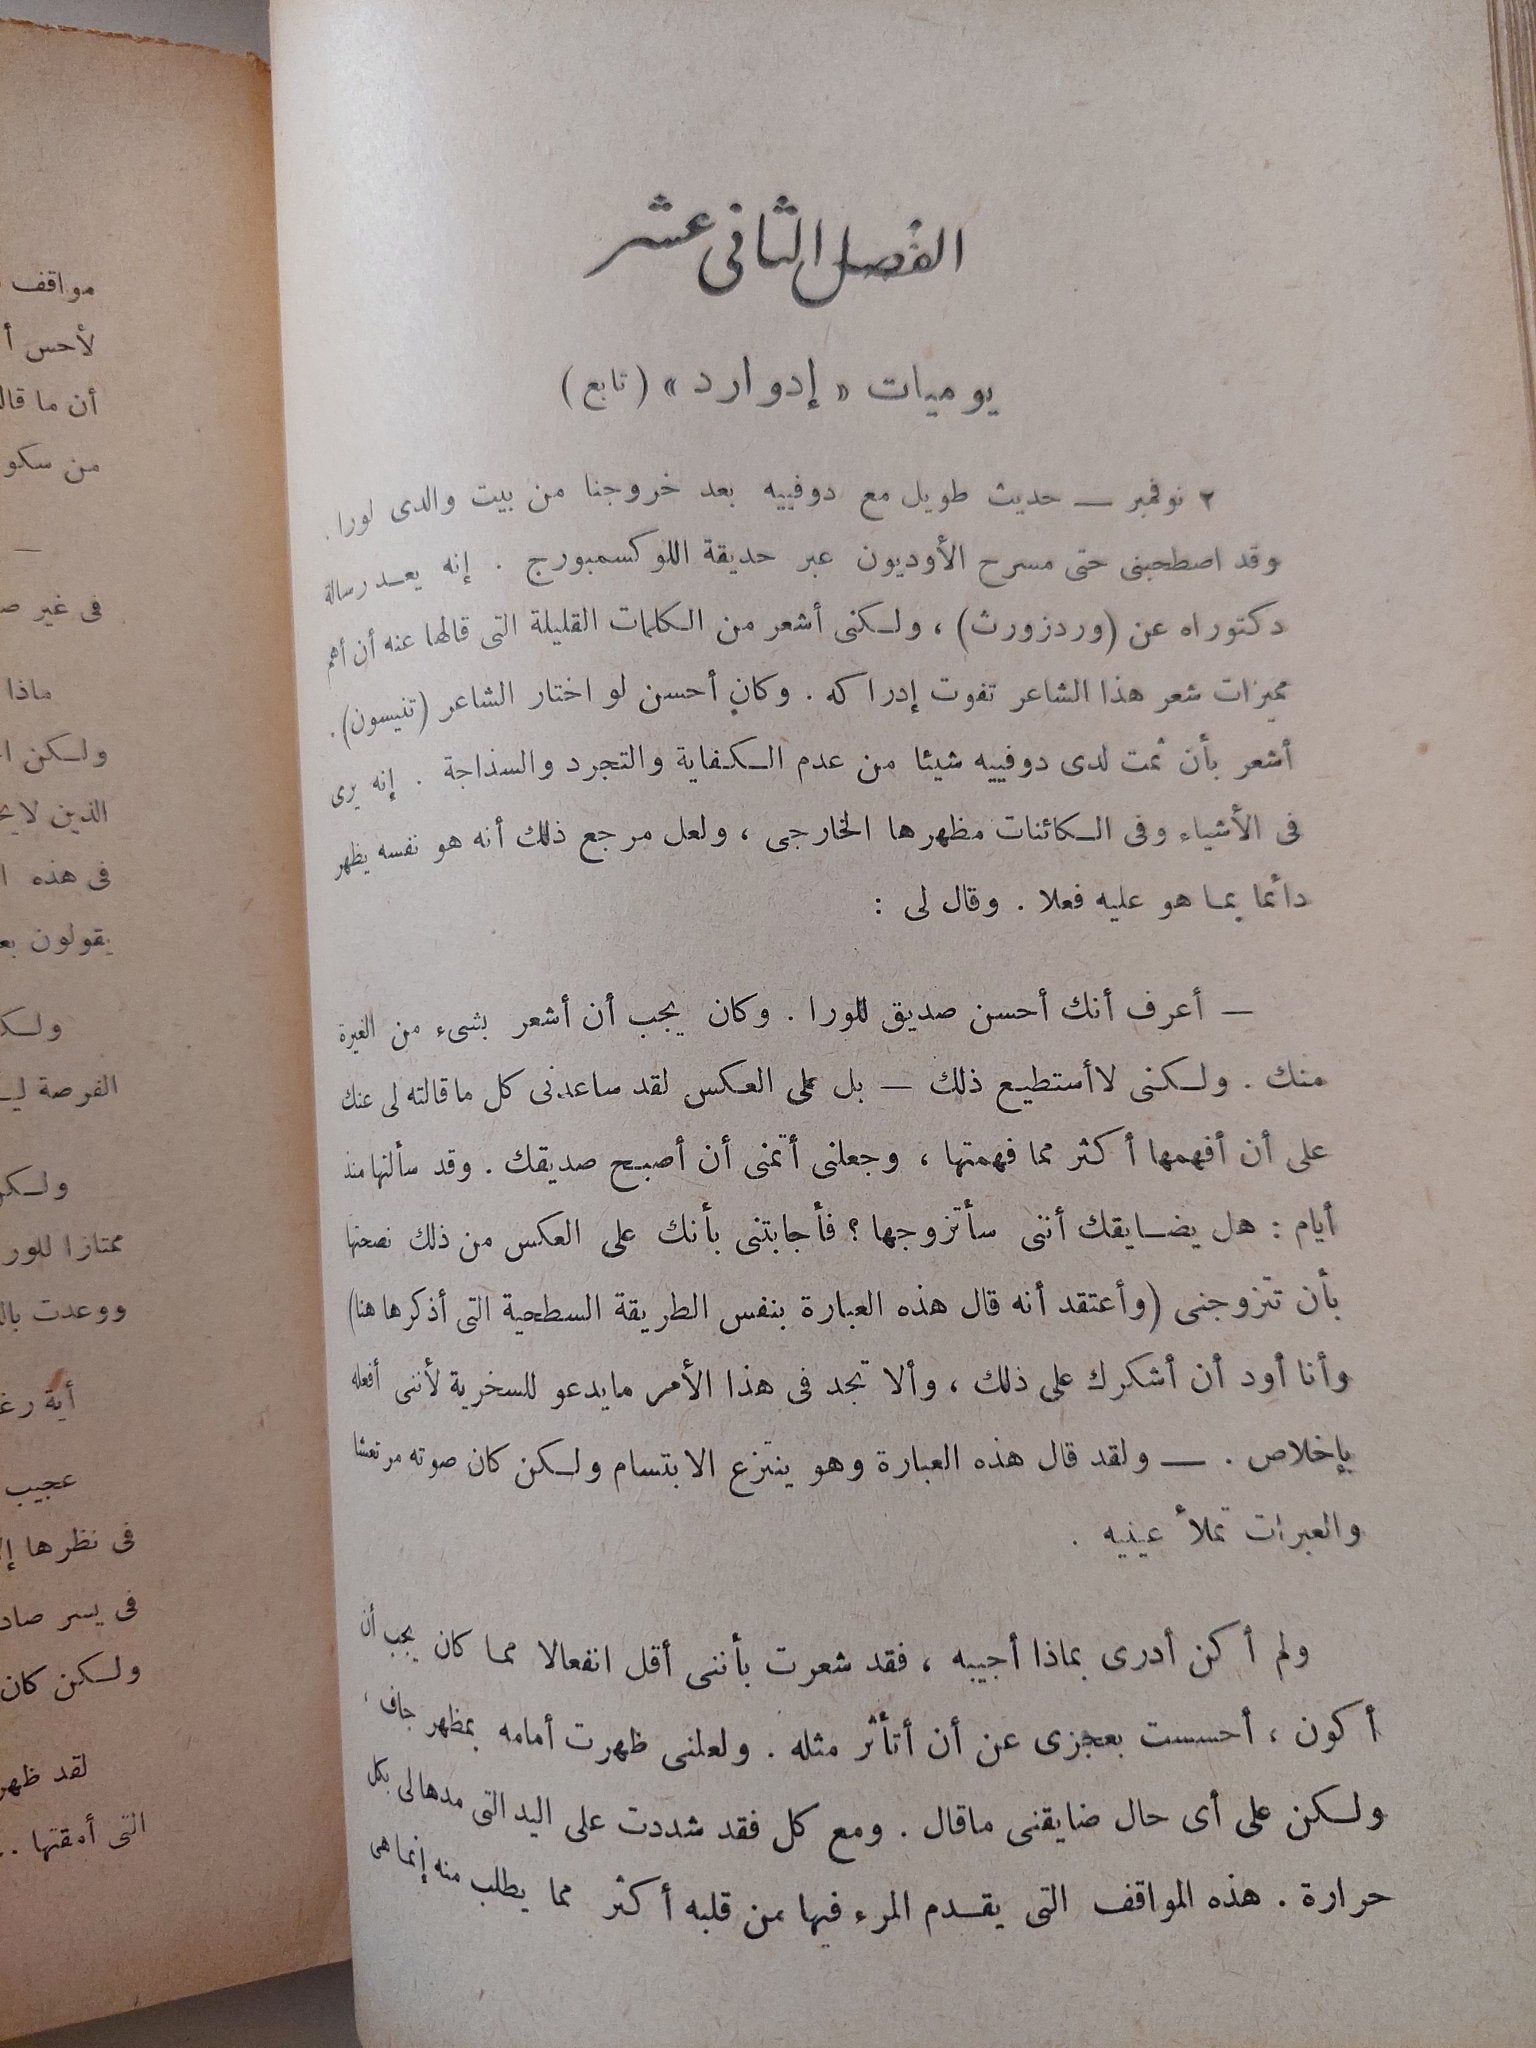 الفصل الثانى عشر
يوميات « إدوارد » ( تابع )
٢ نوفمبر — حديث طويل مع دوفييه بعد خروجنا من بيت والدى لورا .
وقد اصطحبنى حتى مسرح الأوديون عبر حديقة اللوكسمبورج . إنه يعد رسالة
دكتوراه عن (وردزورث) ، ولكنى أشعر من الكلمات القليلة التى قالها عنه أن أهم
مميزات شعر هذا الشاعر تفوت إدراكه . وكان أحسن لو اختار الشاعر (تنيسون) .
أشعر بأن ثمت لدى دوفييه شيئا من عدم الكفاية والتجرد والسذاجة . إنه يرى
فى الأشياء وفى الكائنات مظهرها الخارجى ، ولعل مرجع ذلك أنه هو نفسه يظهر
دائما بما هو عليه فعلا . وقال لى :
— أعرف أنك أحسن صديق للورا . وكان يجب أن أشعر بشىء من الغيرة
منك . ولكنى لاأستطيع ذلك — بل على العكس لقد ساعدنى كل ماقالته لى عنك
على أن أفهمها أكثر مما فهمتها ، وجعلنى أتمنى أن أصبح صديقك . وقد سألتها منذ
أيام : هل يضايقك أننى سأتزوجها ؟ فأجابتنى بأنك على العكس من ذلك نصحتها
بأن تتزوجنى (وأعتقد أنه قال هذه العبارة بنفس الطريقة السطحية التى أذكرها هنا)
وأنا أود أن أشكرك على ذلك ، وألا تجد فى هذا الأمر مايدعو للسخرية لأننى أفعله
بإخلاص . — ولقد قال هذه العبارة وهو ينتزع الابتسام ولكن كان صوته مرتعشا
والعبرات تملأ عينيه .
ولم أكن أدرى بماذا أجيبه ، فقد شعرت بأننى أقل انفعالا مما كان يجب أن
أكون ، أحسست بعجزى عن أن أتأثر مثله . ولعلنى ظهرت أمامه بمظهر جاف ،
ولكن على أى حال ضايقنى ماقال . ومع كل فقد شددت على اليد التى مدها لى بكل
حرارة . هذه المواقف التى يقدم المرء فيها من قلبه أكثر مما يطلب منه إنما هى
مواقف
لأحس
أن ما
من
فى غير
ماذا
ولكن
الذين
فى هذه
يقولون
الفرصة
ممتازا للورا
ووعدت
أية
عجيب
فى نظرها
فى يسر
ولكن كان
لقد ظهر
التى أمقتها ..